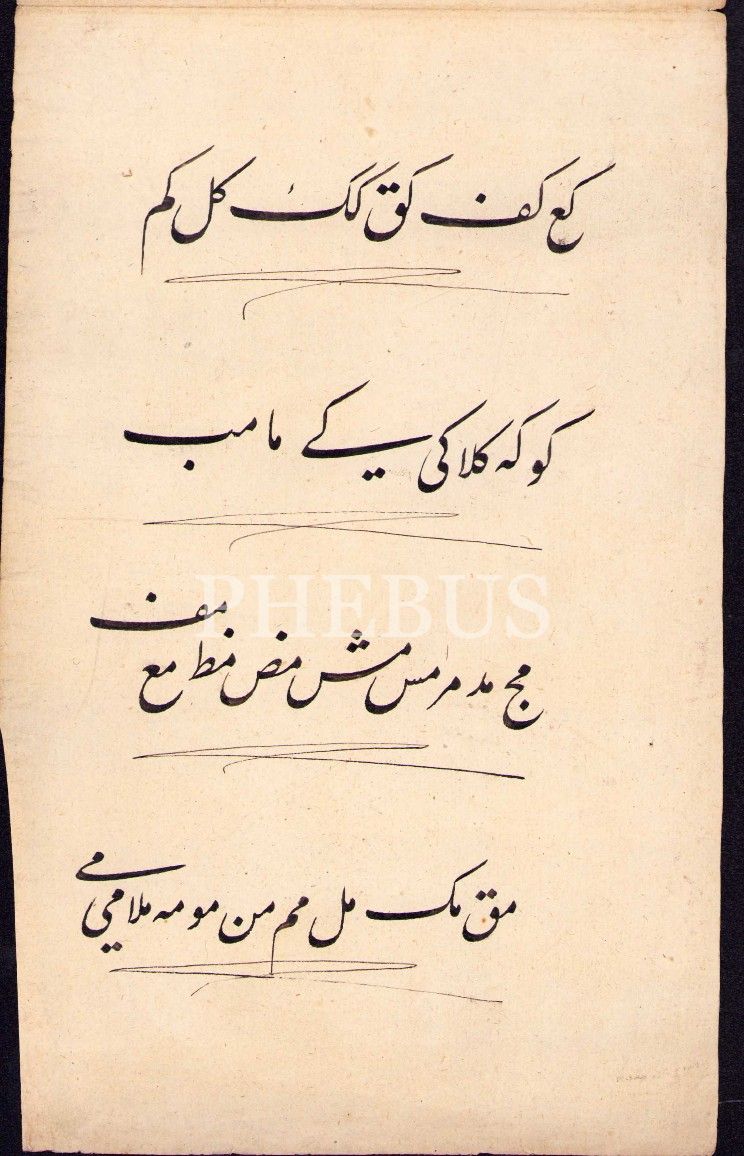 کع کف کق کک کل کم
کو که کلا کی کے ما مب
PHEBUS
مج مد مر مس مش مص مط مع مف
مق مک مل مم من مو مه ملا می مے